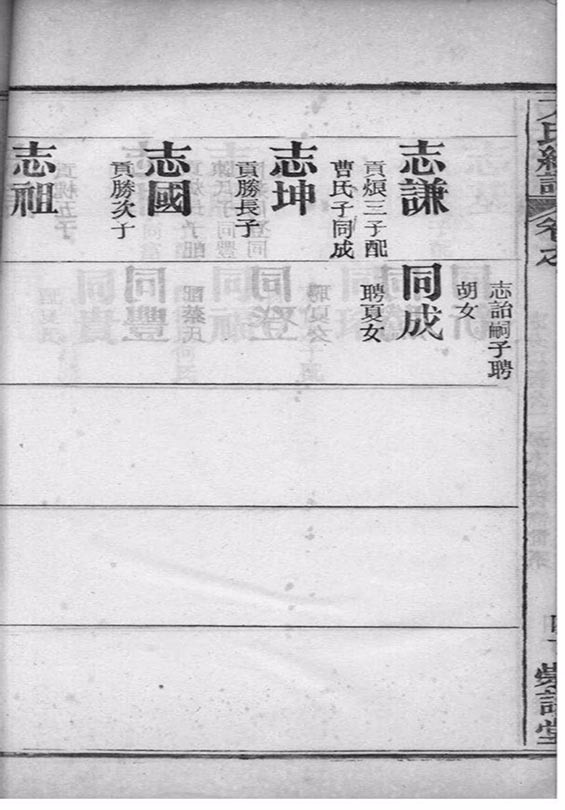 志謙
貢 三子配
曹氏子同成
志坤
貢勝長子
志國
貢勝次子
志祖
志詒嗣子聘
胡女
同成
聘夏女